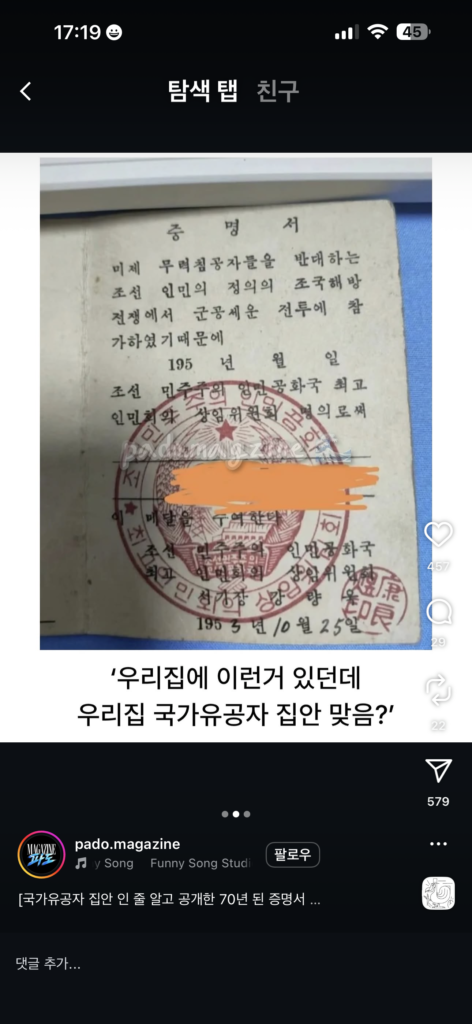 17:19
45
탐색 탭 친구
증 명 서
미제 무력침공자들을 반대하는
조선 인민의 정의의 조국해방
전쟁에서 군공세운 전투에 참
가하였기때문에
195 년 월 일
조선 민주주의 인민공화국 최고
인민회의 상임위원회 명의로써
pado.magazine
이 메달을 수여한다
조선 민주주의 인민공화국
최고 인민회의 상임위원회
서기장 강 량 욱
1953년 10월 25일
‘우리집에 이런거 있던데
우리집 국가유공자 집안 맞음?’
457
29
22
579
MAGAZINE
파도
pado.magazine
y Song Funny Song Studi
팔로우
[국가유공자 집안 인 줄 알고 공개한 70년 된 증명서 ...
댓글 추가...